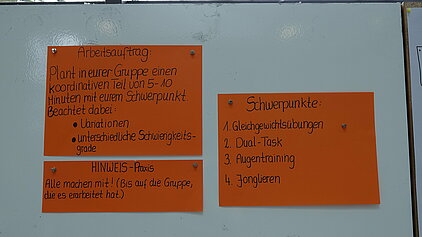 Arbeitsauftrag:
Plant in eurer Gruppe einen
koordinativen Teil von 5-10
Minuten mit eurem Schwerpunkt.
Beachtet dabei:
• Variationen
• unterschiedliche Schwierigkeits-
grade
HINWEIS-Praxis
Alle machen mit! (Bis auf die Gruppe,
die es erarbeitet hat.)
Schwerpunkte:
1. Gleichgewichtsübungen
2. Dual-Task
3. Augentraining
4. Jonglieren